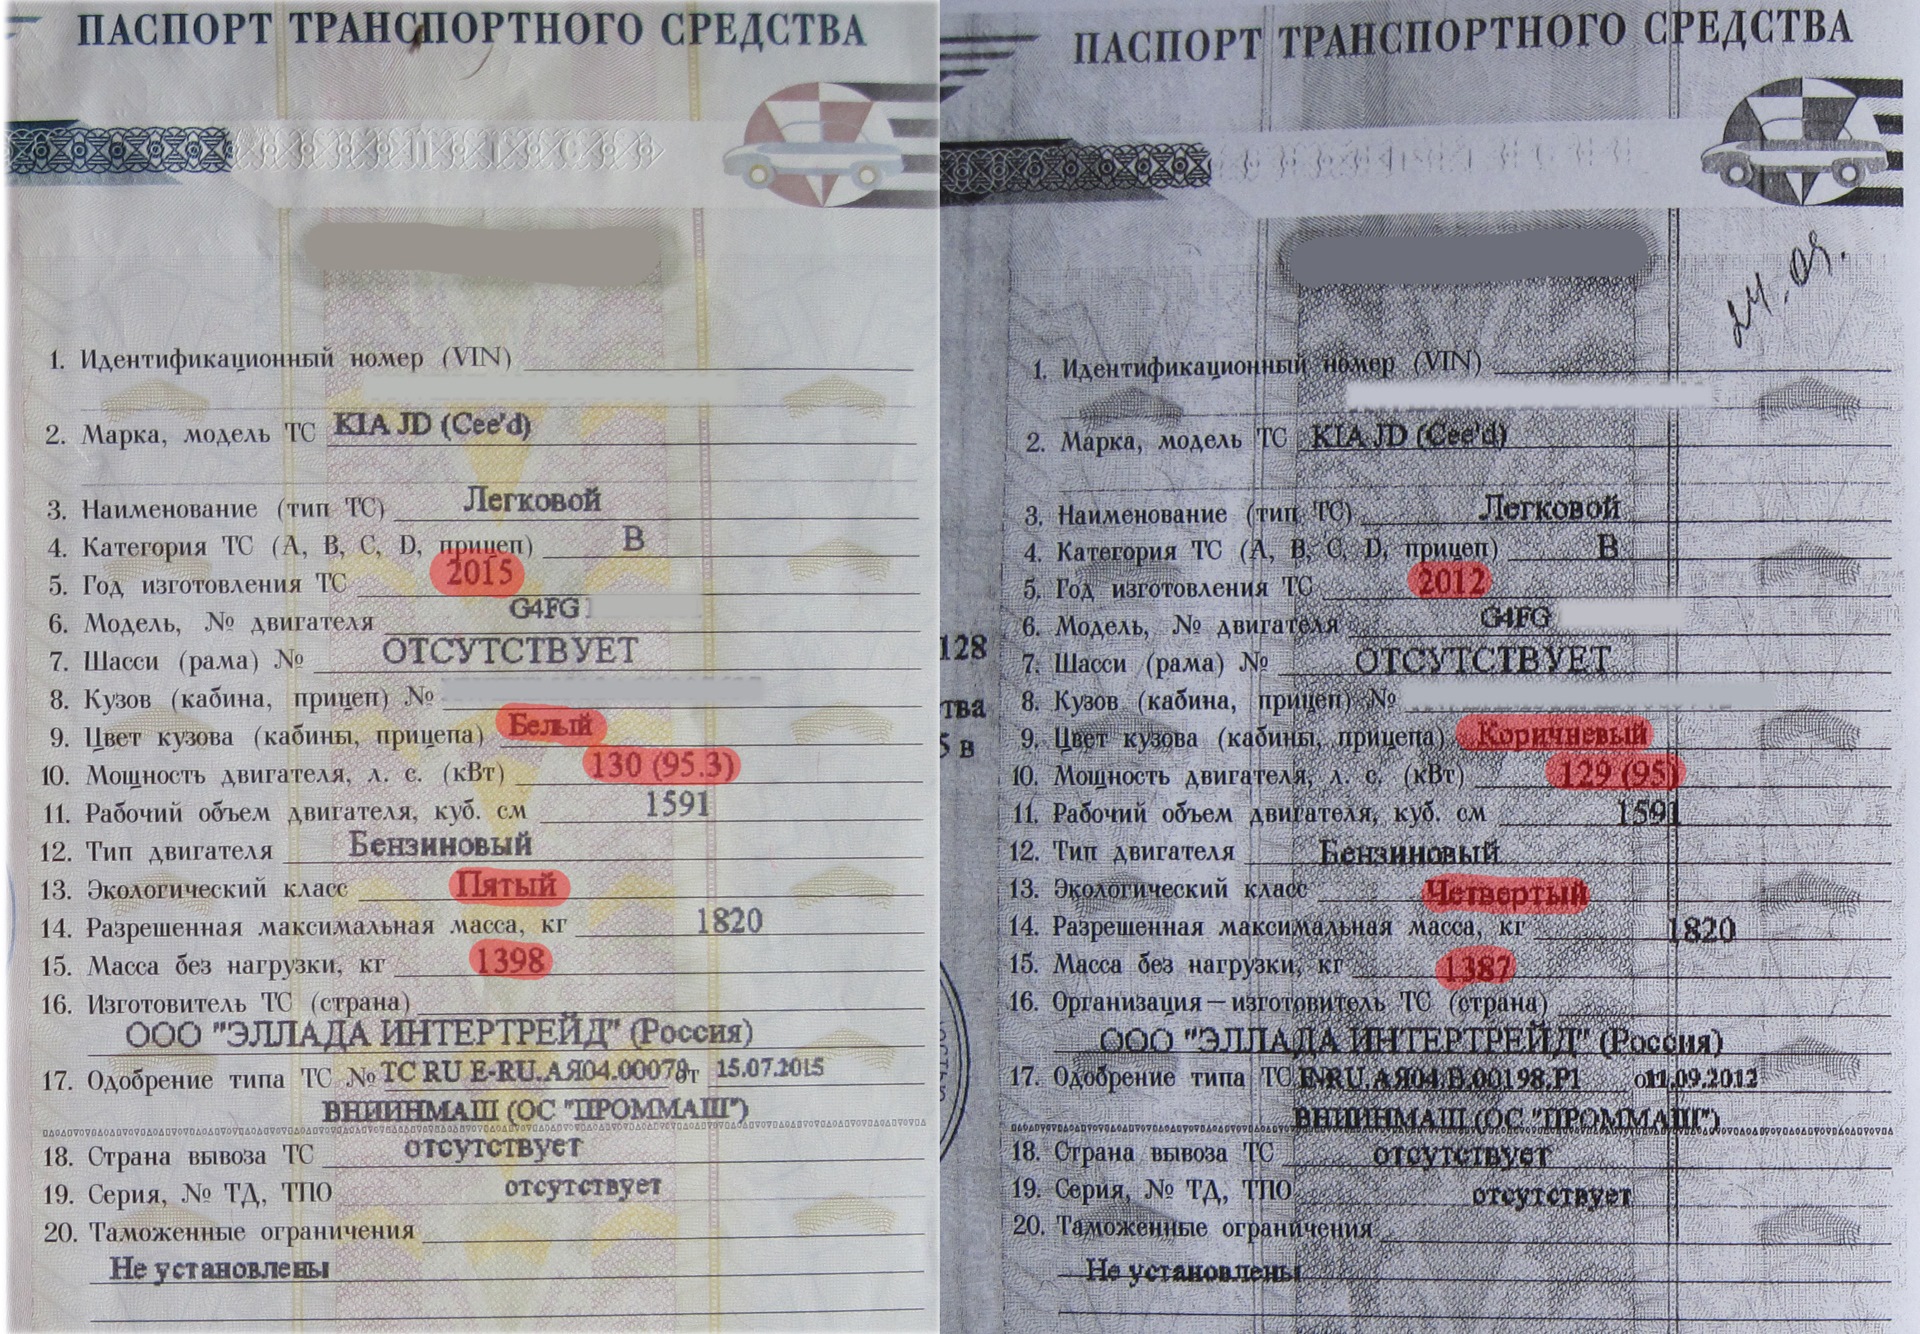 ПАСПОРТ ТРАНСПОРТНОГО СРЕДСТВА
ПТС
1. Идентификационный номер (VIN)
2. Марка, модель ТС KIA JD (Cee'd)
3. Наименование (тип ТС) Легковой
4. Категория ТС (A, B, C, D, прицеп) B
5. Год изготовления ТС 2015
6. Модель, № двигателя G4FG
7. Шасси (рама) № ОТСУТСТВУЕТ
8. Кузов (кабина, прицеп) №
9. Цвет кузова (кабины, прицепа) Белый
10. Мощность двигателя, л. с. (кВт) 130 (95.3)
11. Рабочий объем двигателя, куб. см 1591
12. Тип двигателя Бензиновый
13. Экологический класс Пятый
14. Разрешенная максимальная масса, кг 1820
15. Масса без нагрузки, кг 1398
16. Изготовитель ТС (страна)
ООО "ЭЛЛАДА ИНТЕРТРЕЙД" (Россия)
17. Одобрение типа ТС № ТС RU E-RU.АЯ04.00078 от 15.07.2015
ВНИИНМАШ (ОС "ПРОММАШ")
18. Страна вывоза ТС отсутствует
19. Серия, № ТД, ТПО отсутствует
20. Таможенные ограничения
Не установлены
ПАСПОРТ ТРАНСПОРТНОГО СРЕДСТВА
24.09.
1. Идентификационный номер (VIN)
2. Марка, модель ТС KIA JD (Cee'd)
3. Наименование (тип ТС) Легковой
4. Категория ТС (A, B, C, D, прицеп) B
5. Год изготовления ТС 2012
6. Модель, № двигателя G4FG
128
7. Шасси (рама) № ОТСУТСТВУЕТ
8. Кузов (кабина, прицеп) №
тва
9. Цвет кузова (кабины, прицепа) Коричневый
5 в
10. Мощность двигателя, л. с. (кВт) 129 (95)
11. Рабочий объем двигателя, куб. см 1591
12. Тип двигателя Бензиновый
13. Экологический класс Четвертый
14. Разрешенная максимальная масса, кг 1820
15. Масса без нагрузки, кг 1387
16. Организация—изготовитель ТС (страна)
ООО "ЭЛЛАДА ИНТЕРТРЕЙД" (Россия)
17. Одобрение типа ТС E-RU.АЯ04.В.00198.Р1 о11.09.2012
ВНИИНМАШ (ОС "ПРОММАШ")
18. Страна вывоза ТС отсутствует
19. Серия, № ТД, ТПО отсутствует
20. Таможенные ограничения
Не установлены